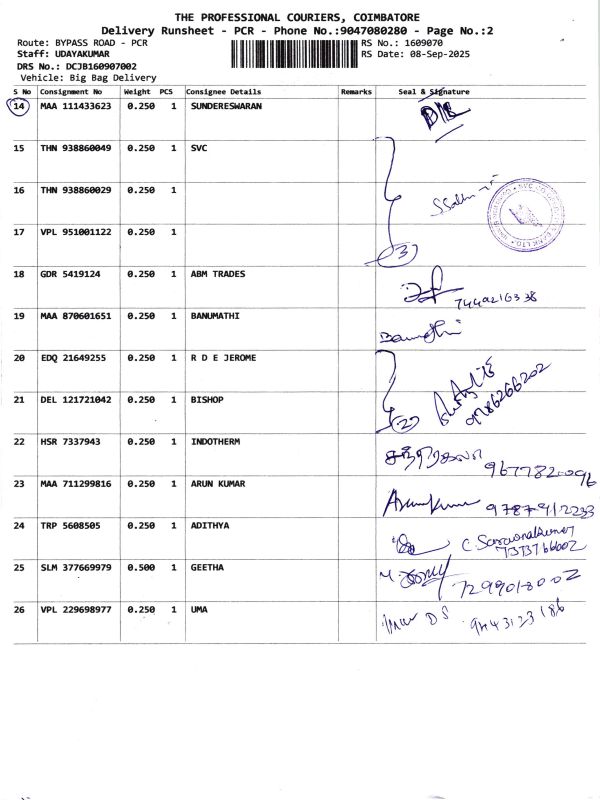 THE PROFESSIONAL COURIERS, COIMBATORE
Delivery Runsheet - PCR - Phone No.:9047080280 - Page No.:2
Route: BYPASS ROAD - PCR RS No.: 1609070
Staff: UDAYAKUMAR RS Date: 08-Sep-2025
DRS No.: DCJB160907002
Vehicle: Big Bag Delivery
S No Consignment No Weight PCS Consignee Details Remarks Seal & Signature
14 MAA 111433623 0.250 1 SUNDERESWARAN
15 THN 938860049 0.250 1 SVC
16 THN 938860029 0.250 1
17 VPL 951001122 0.250 1
(3)
18 GDR 5419124 0.250 1 ABM TRADES
7449216338
19 MAA 870601651 0.250 1 BANUMATHI
20 EDQ 21649255 0.250 1 R D E JEROME
21 DEL 121721042 0.250 1 BISHOP
(2) 9786266202
22 HSR 7337943 0.250 1 INDOTHERM
967782096
23 MAA 711299816 0.250 1 ARUN KUMAR
Arunkumar 9787912233
24 TRP 5608505 0.250 1 ADITHYA
C. Saravanakumar
7373766002
25 SLM 377669979 0.500 1 GEETHA
7299018002
26 VPL 229698977 0.250 1 UMA
9443123186